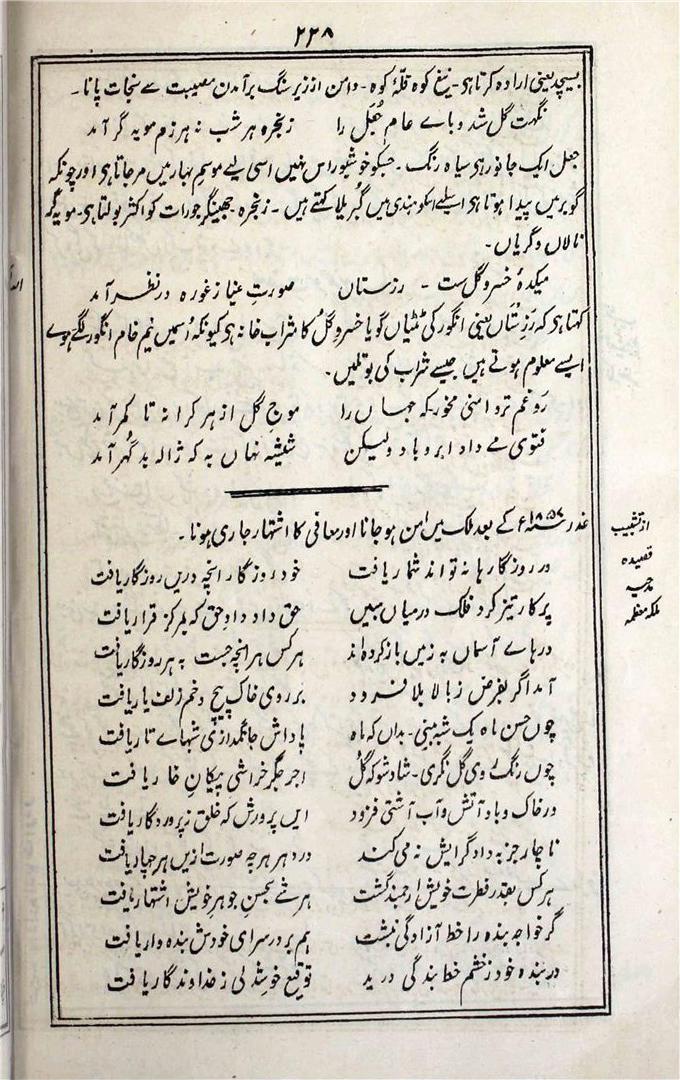 ۲۲۸
بسیچد یعنی ارادہ کرتا ہی۔ تیغ کوہ قلۂ کوہ۔ دامن از زیر سنگ برآمدن مصیبت سے نجات پانا۔
نگہت گل شد وباے عام جُعَل را زنجرہ ہر شب نہ ہرزہ مویہ گر آمد
جعل ایک جانور ہی سیاہ رنگ۔ جسکو خوشبو راس نہیں اسی لیے موسم بہار میں مرجاتا ہی اور چونکہ
گوبر میں پیدا ہوتا ہی اسلیے اسکو ہندی میں گُبریلا کہتے ہیں۔ زنجرہ۔ جھینگر جو رات کو اکثر بولتا ہی۔ مویہ گر
نالاں وگریاں۔
میکدۂ خسرو گل ست۔ رزستاں صورتِ مینا زغورہ درنظر آمد
کہتا ہی کہ رَزِستاں یعنی انگور کی ٹٹیاں گویا خسروِ گُل کا شراب خانہ ہی کیونکہ اُسمیں نیم خام انگور لگے ہوے
ایسے معلوم ہوتے ہیں جیسے شراب کی بوتلیں۔
رَو غم تر دامنی مخور کہ جہاں را موج گل از ہر کرانہ تا کمر آمد
فتوی مے داد ابر و باد ولیکن شیشہ نہاں بہ کہ ژالہ بد گُہر آمد
غدر ۱۸۵۷ء کے بعد ملک میں امن ہوجانا اور معافی کا اشتہار جاری ہونا۔
از تشبیب
قصیدہ
مدحیہ
ملکہ معظمہ
در روزگارہا نہ تواند شمار یافت خود روزگار انچہ دریں روزگار یافت
پرکار تیز گرد فلک درمیاں مبیں حق داد دادِ حق کہ بمرکز قرار یافت
درہاے آسماں بہ زمیں باز کردہ اند ہرکس ہر انچہ جست بہ ہر روزگار یافت
آمد اگر بفرض ز بالا بلا فرود بر روی خاک پیچ وخمِ زلف یار یافت
چوں حسن ماہ یک شبہ بینی۔ بداں کہ ماہ پاداش جانگدازیِ شبہاے تار یافت
چوں رنگ روی گل نگری۔ شاد شو کہ گُل اجر جگر خراشی پیکانِ خار یافت
درخاک وباد وآتش وآب آشتی فزود ایں پرورش کہ خلق ز پروردگار یافت
ناچار جز بہ داد گرایش نہ می کند در دہر ہر چہ صورت ازیں ہر چہار یافت
ہرکس بقدر فطرت خویش ارجمند گشت ہر شے بحسنِ جوہر خویش اشتہار یافت
گر خواجہ بندہ را خط آزادگی نبشت ہم بر در سرای خودش بندہ وار یافت
ور بندہ خود ز خشم خط بندگی درید توقیع خوشدلی ز خداوندگار یافت